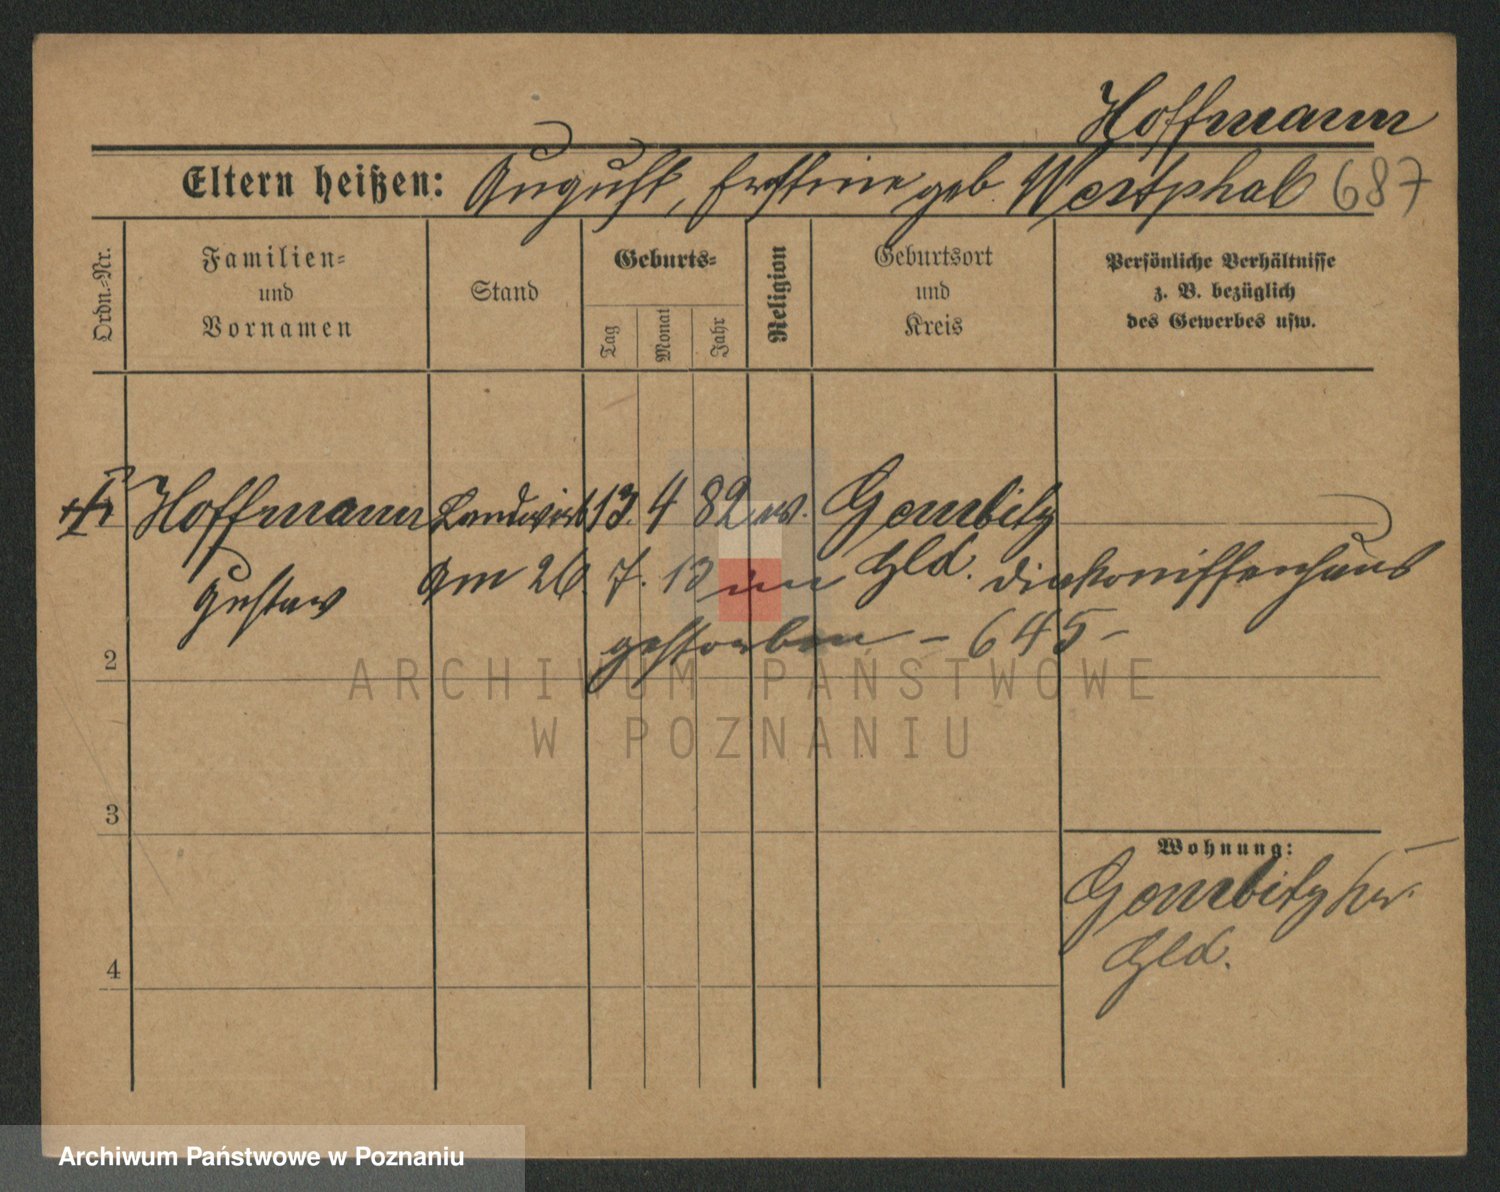 Hoffmann
Eltern heißen: August, geb. Westphal 687
Ordn.-Nr.
Familien-
und
Vornamen
Stand
Geburts-
Tag
Monat
Jahr
Religion
Geburtsort
und
Kreis
Persönliche Verhältnisse
z. B. bezüglich
des Gewerbes usw.
Hoffmann Landwirt 13. 4 82 ev. Gembitz
Gustav am 26. 7. 13 im hies. Diakonissenhaus
gestorben - 645 -
2
ARCHIWUM PAŃSTWOWE
W POZNANIU
3
Wohnung:
Gembitz
4
Archiwum Państwowe w Poznaniu